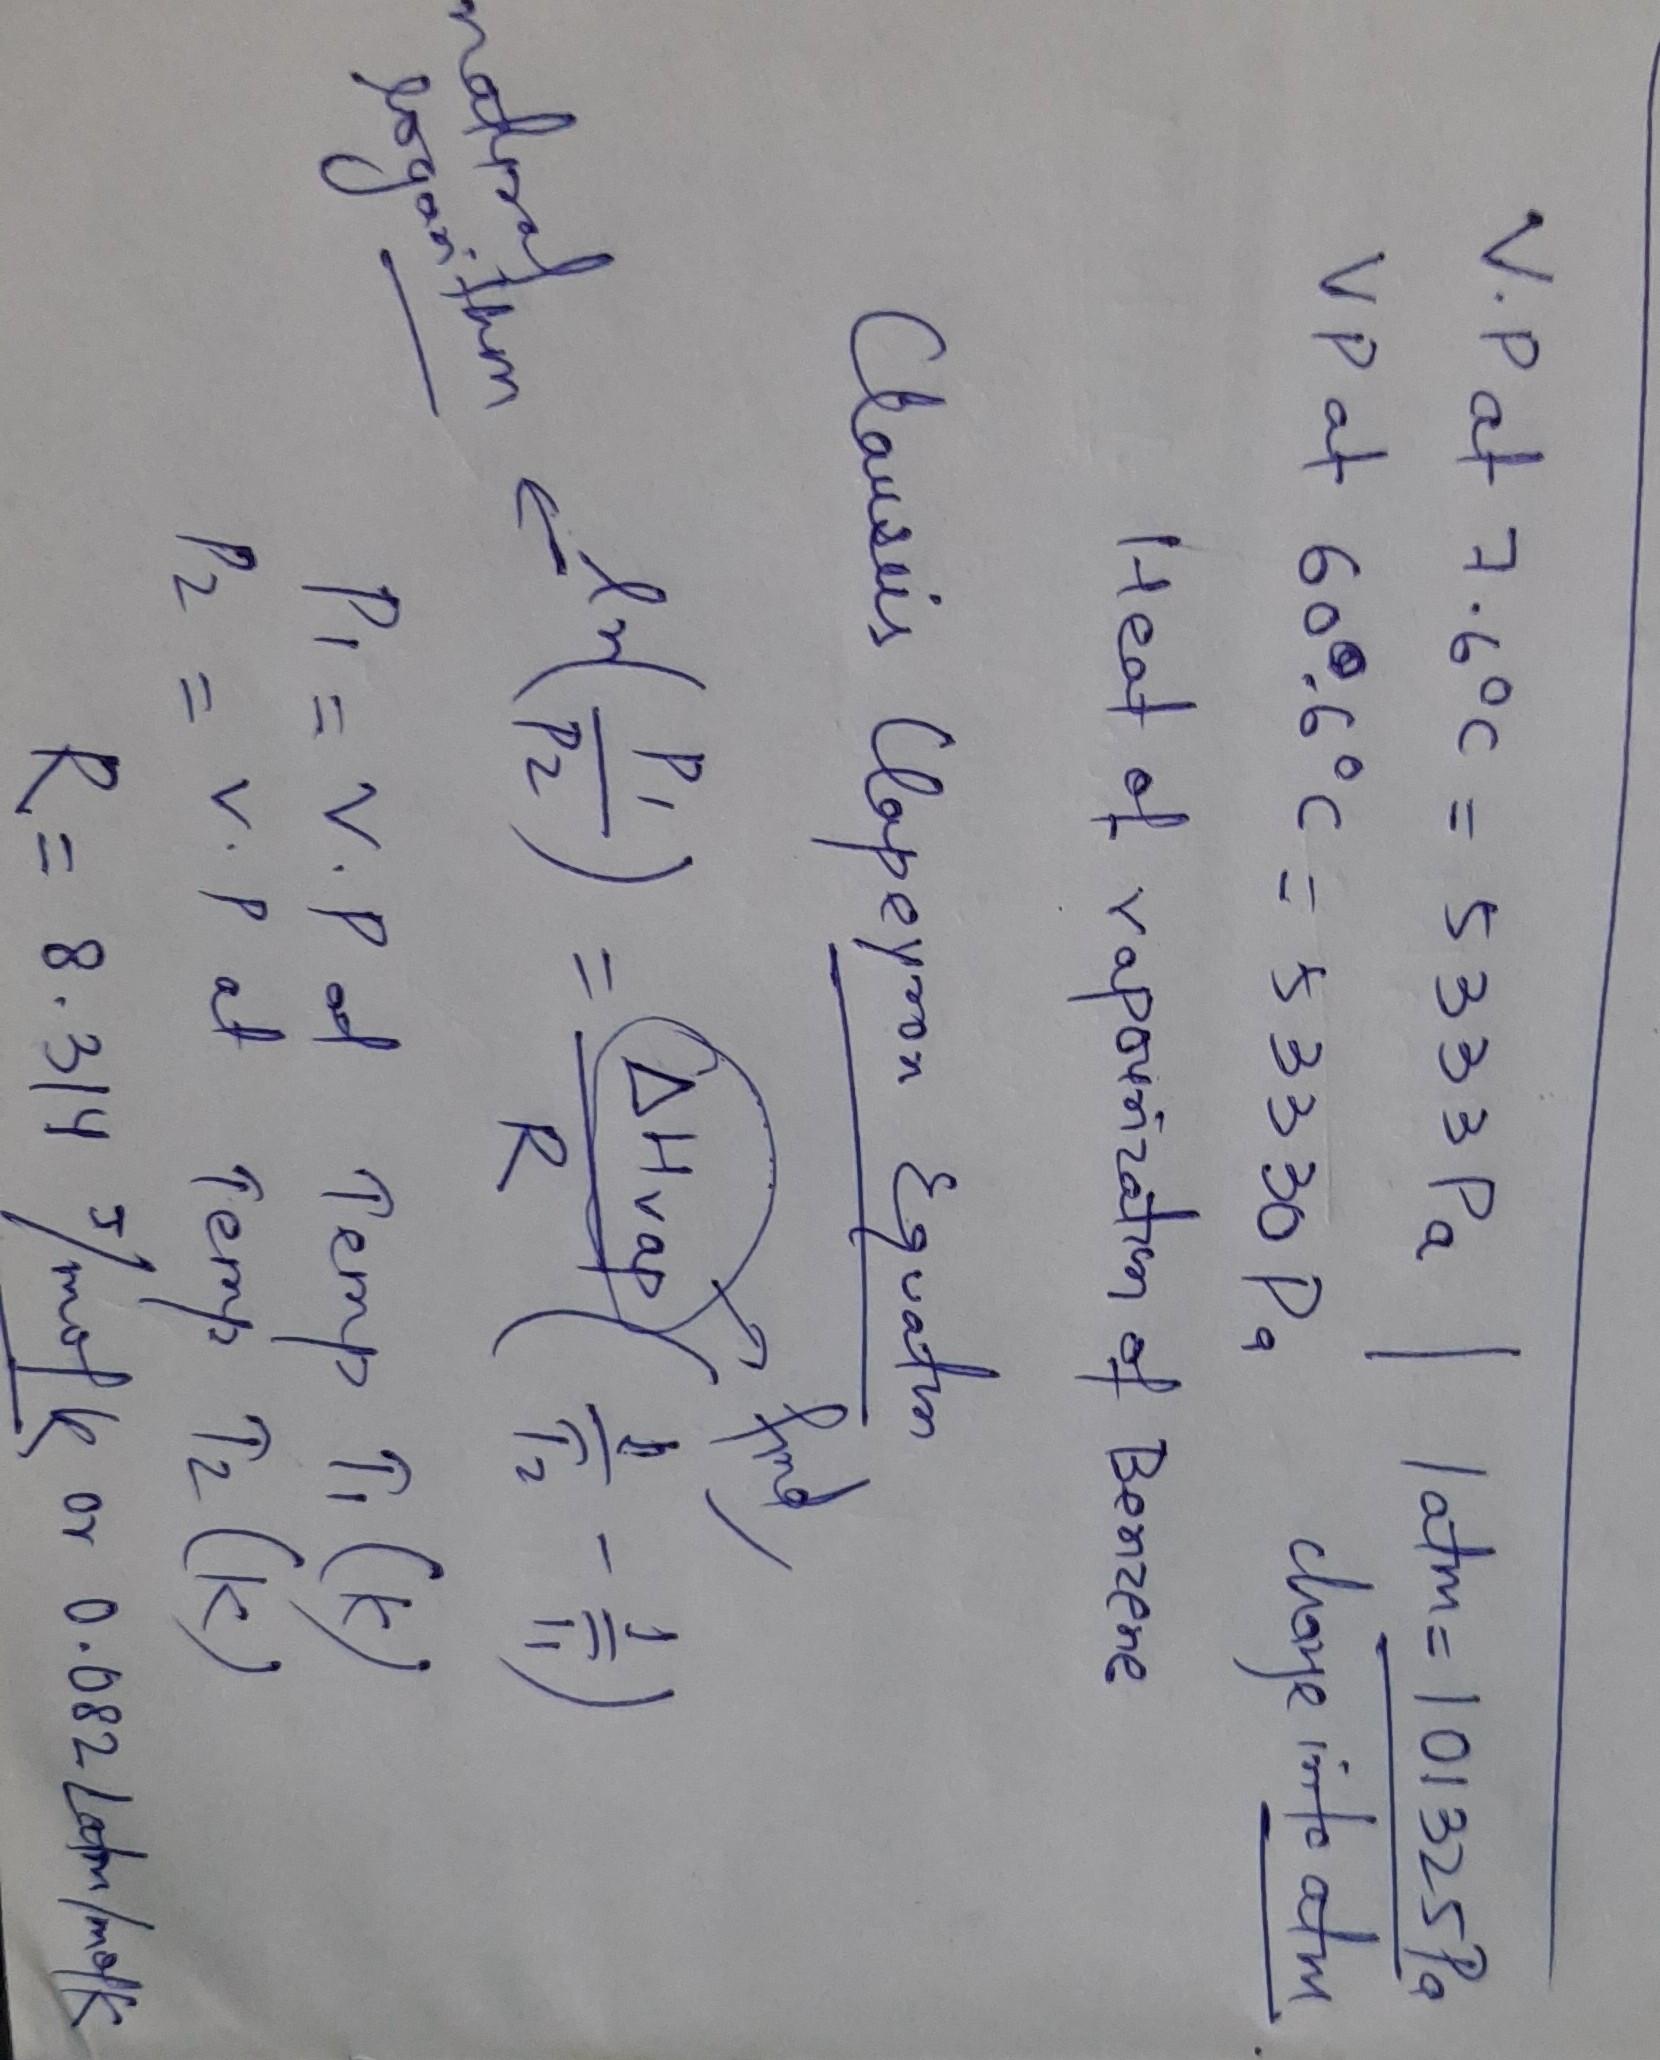 V.P at 7.6°C = 5333 Pa | 1atm = 101325Pa
VP at 60.6°C = 53330 Pa change into atm
Heat of vaporization of Benzene
Clausius Clapeyron Equation
natural logarithm ← ln(P1/P2) = ΔHvap/R (1/T2 - 1/T1)
find
P1 = V.P at Temp T1 (K)
P2 = V.P at Temp T2 (K)
R = 8.314 J/mol K or 0.082 Latm/mol/K